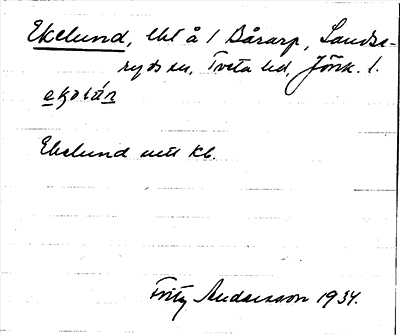 Ekelund, lht å 1 Bårarp, Sands-
ryds sn, Tveta hd, Jönk. l.
Ekelund utt Kb.
Fritz Andersson 1934.